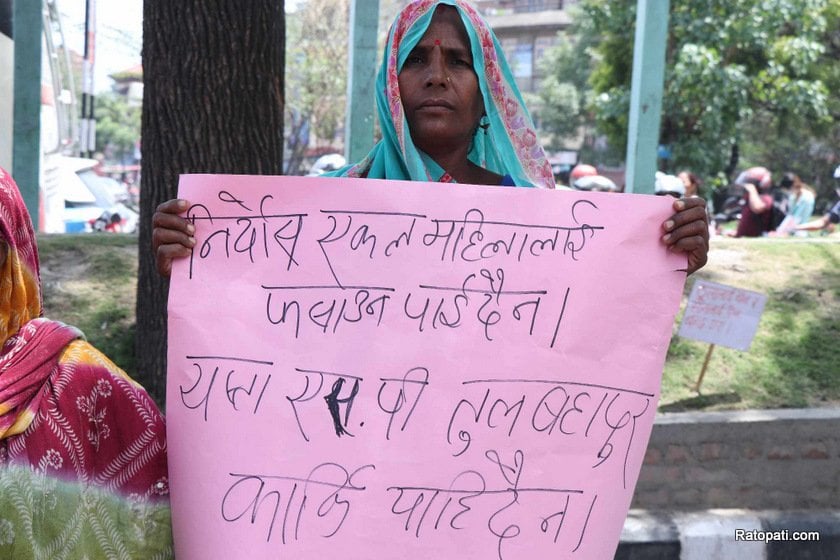 निर्दोष एकल महिलालाई
फसाउन पाईदैन।
यस्ता एस.पी तुल बहादुर
कार्कि चाहिदैन।
Ratopati.com